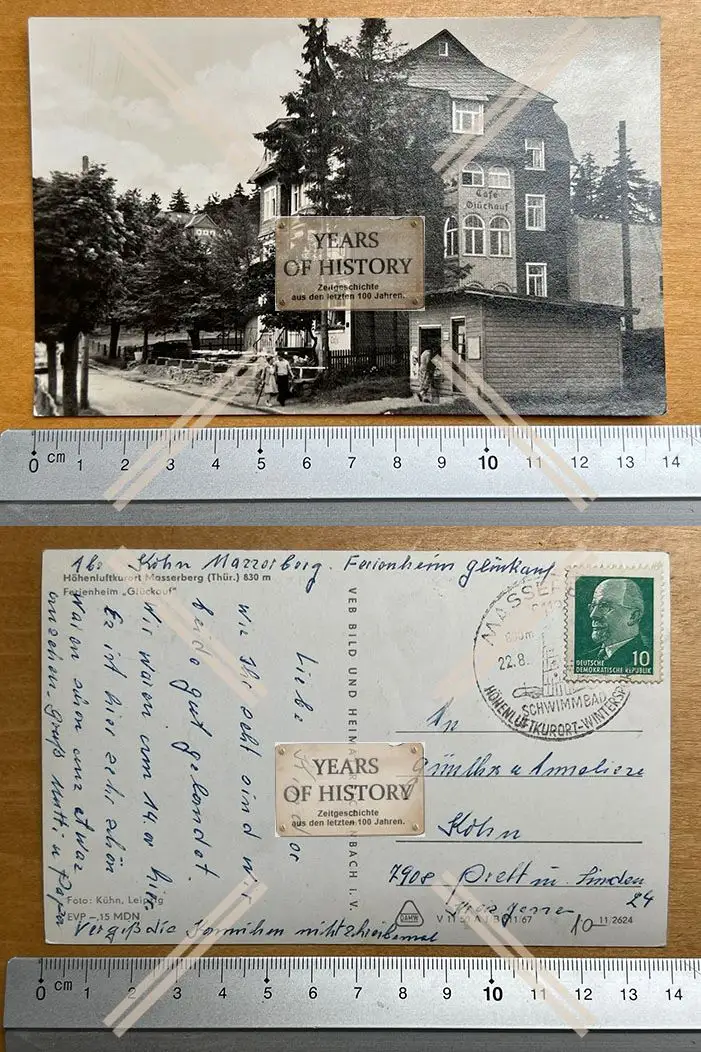 Café
Glückauf
YEARS
OF HISTORY
Zeitgeschichte
aus den letzten 100 Jahren.
0 cm 1 2 3 4 5 6 7 8 9 10 11 12 13 14
Abs. Köhn Masserberg. Ferienheim Glückauf
Höhenluftkurort Masserberg (Thür.) 830 m
Ferienheim „Glückauf"
Liebe
wie Ihr seht sind wir
beide gut gelandet.
Wir waren um 14.00 hier
Es ist hier sehr schön
waren schon und etwas
ansehen. Gruß Mutti u Papa
Vergiß die
VEB BILD UND HEIMAT REICHENBACH I. V.
MASSERB
830m
22.8.
SCHWIMMBAD
HÖHENLUFTKURORT-WINTERSP
10
DEUTSCHE
DEMOKRATISCHE REPUBLIK
An
Günther u Anneliese
Köhn
7908 Prettin. Linden
24
YEARS
OF HISTORY
Zeitgeschichte
aus den letzten 100 Jahren.
Foto: Kühn, Leipzig
EVP –,15 MDN
DAMW
V 11 50 A 1/B 1/67
10 11/2624
0 cm 1 2 3 4 5 6 7 8 9 10 11 12 13 14